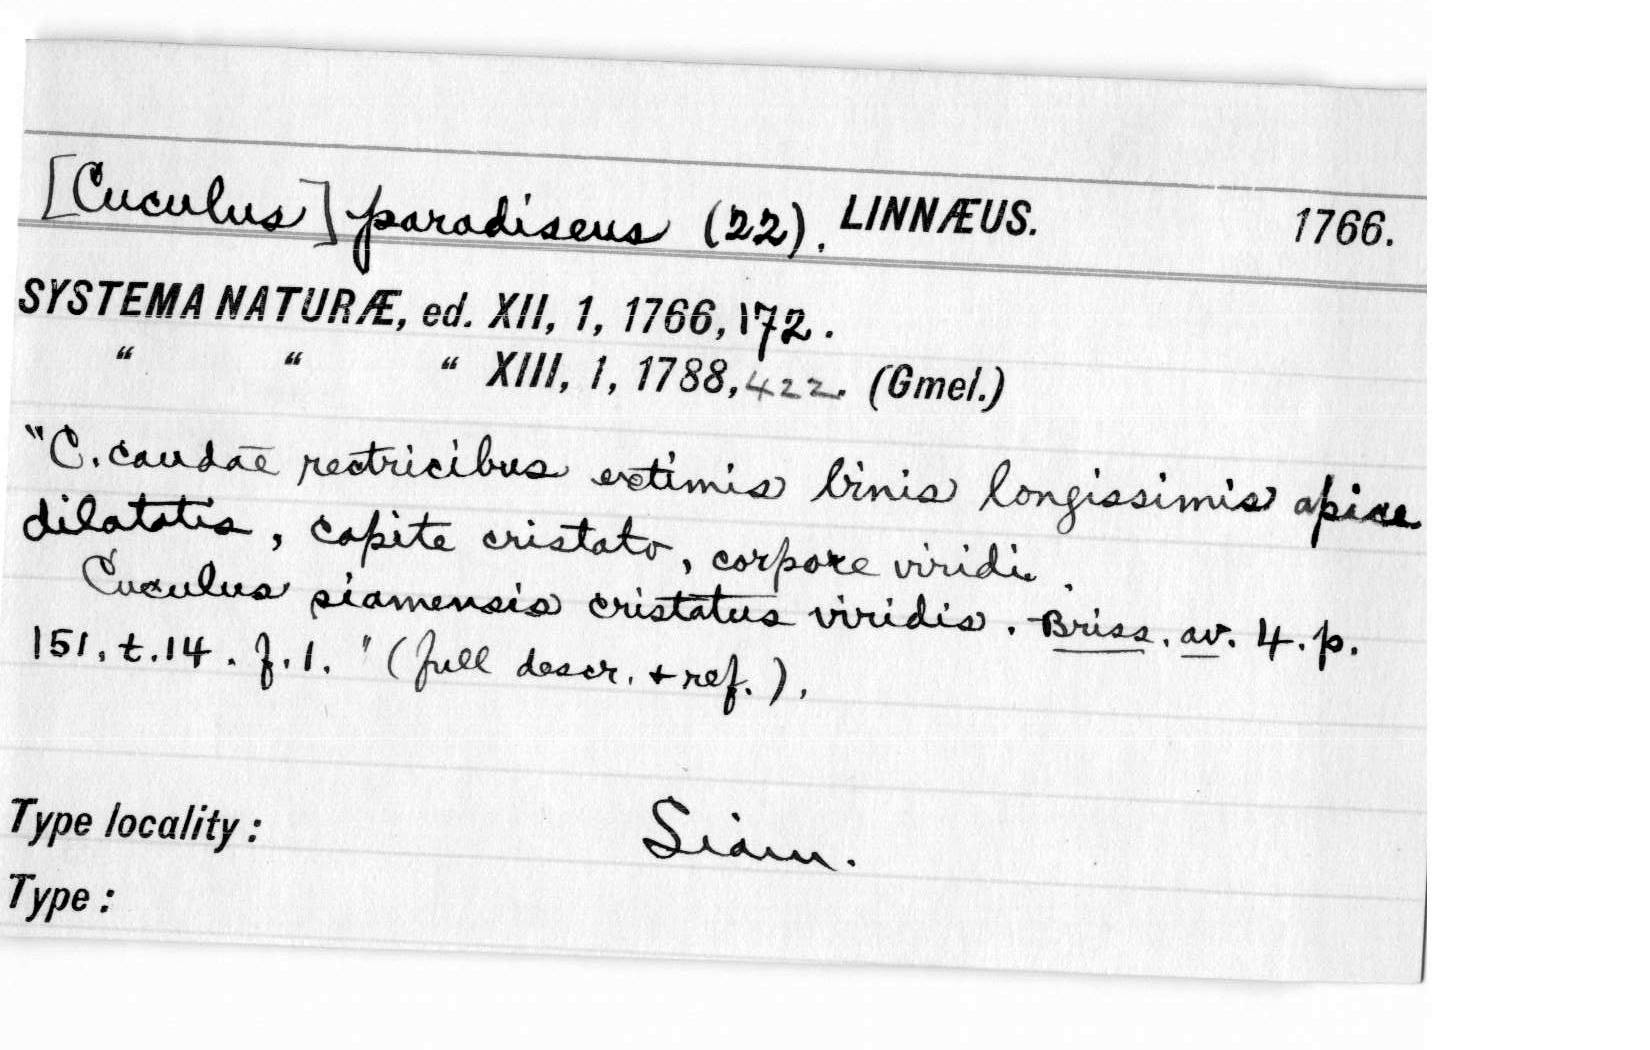 [Cuculus] paradiseus (22). LINNÆUS. 1766.
SYSTEMA NATURÆ, ed. XII, 1, 1766, 172.
“ “ “ XIII, 1, 1788, 422. (Gmel.)
"C. caudae rectricibus extimis binis longissimis apice
dilatatis, capite cristato, corpore viridi.
Cuculus siamensis cristatus viridis. Briss. av. 4. p.
151. t. 14. f. 1." (full descr. + ref.).
Type locality: Siam.
Type: